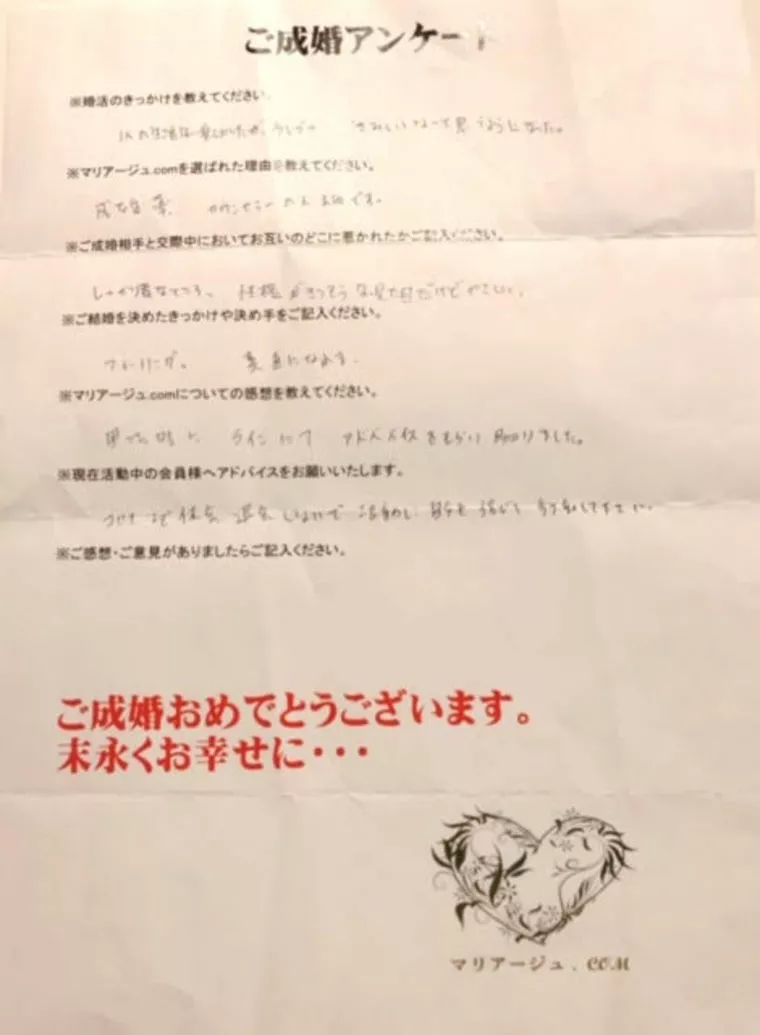 ご成婚アンケート
※婚活のきっかけを教えてください。
1人の生活は楽しかったが、さみしいなって思うようになった。
※マリアージュ.comを選ばれた理由を教えてください。
成婚率 カウンセラーの人柄です。
※ご成婚相手と交際中においてお互いのどこに惹かれたかご記入ください。
しっかり者なところ。 性格がきつそうな見た目だけどやさしい。
※ご結婚を決めたきっかけや決め手をご記入ください。
フィーリング。 素直になれる。
※マリアージュ.comについての感想を教えてください。
困った時に ラインにて アドバイスをもらい助かりました。
※現在活動中の会員様へアドバイスをお願いいたします。
休会 退会しないで 活動し
※ご感想・ご意見がありましたらご記入ください。
ご成婚おめでとうございます。
末永くお幸せに・・・
マリアージュ.COM